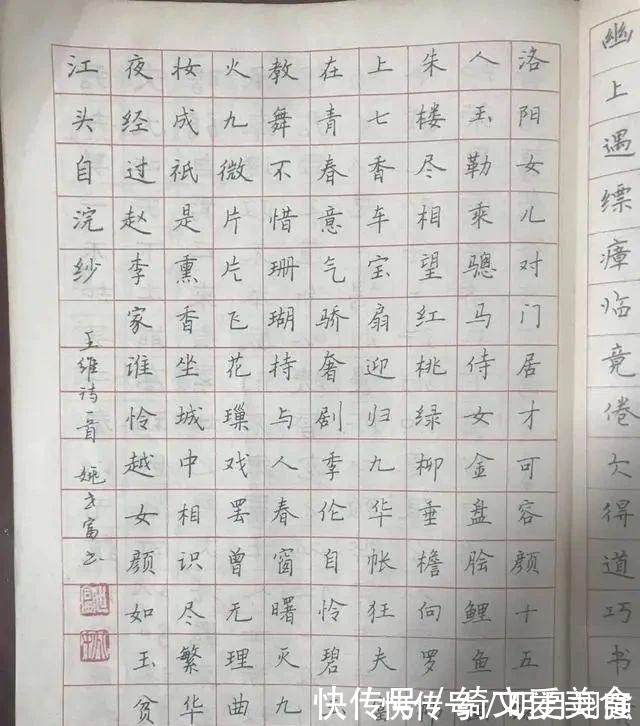 幽上遇缥瘴临竟倦欠得道巧书
洛阳女儿对门居才可容颜十五
人玉勒乘骢马侍女金盘脍鲤鱼
朱楼尽相望红桃绿柳垂檐向罗
上七香车宝扇迎归九华帐狂夫
在青春意气骄奢剧季伦自怜碧
教舞不惜珊瑚持与人春窗曙灭九
火九微片片飞花璅戏罢曾无理曲
妆成祇是熏香坐城中相识尽繁华
夜经过赵李家谁怜越女颜如玉贫
江头自浣纱
王维诗一首 姚富书
快传号